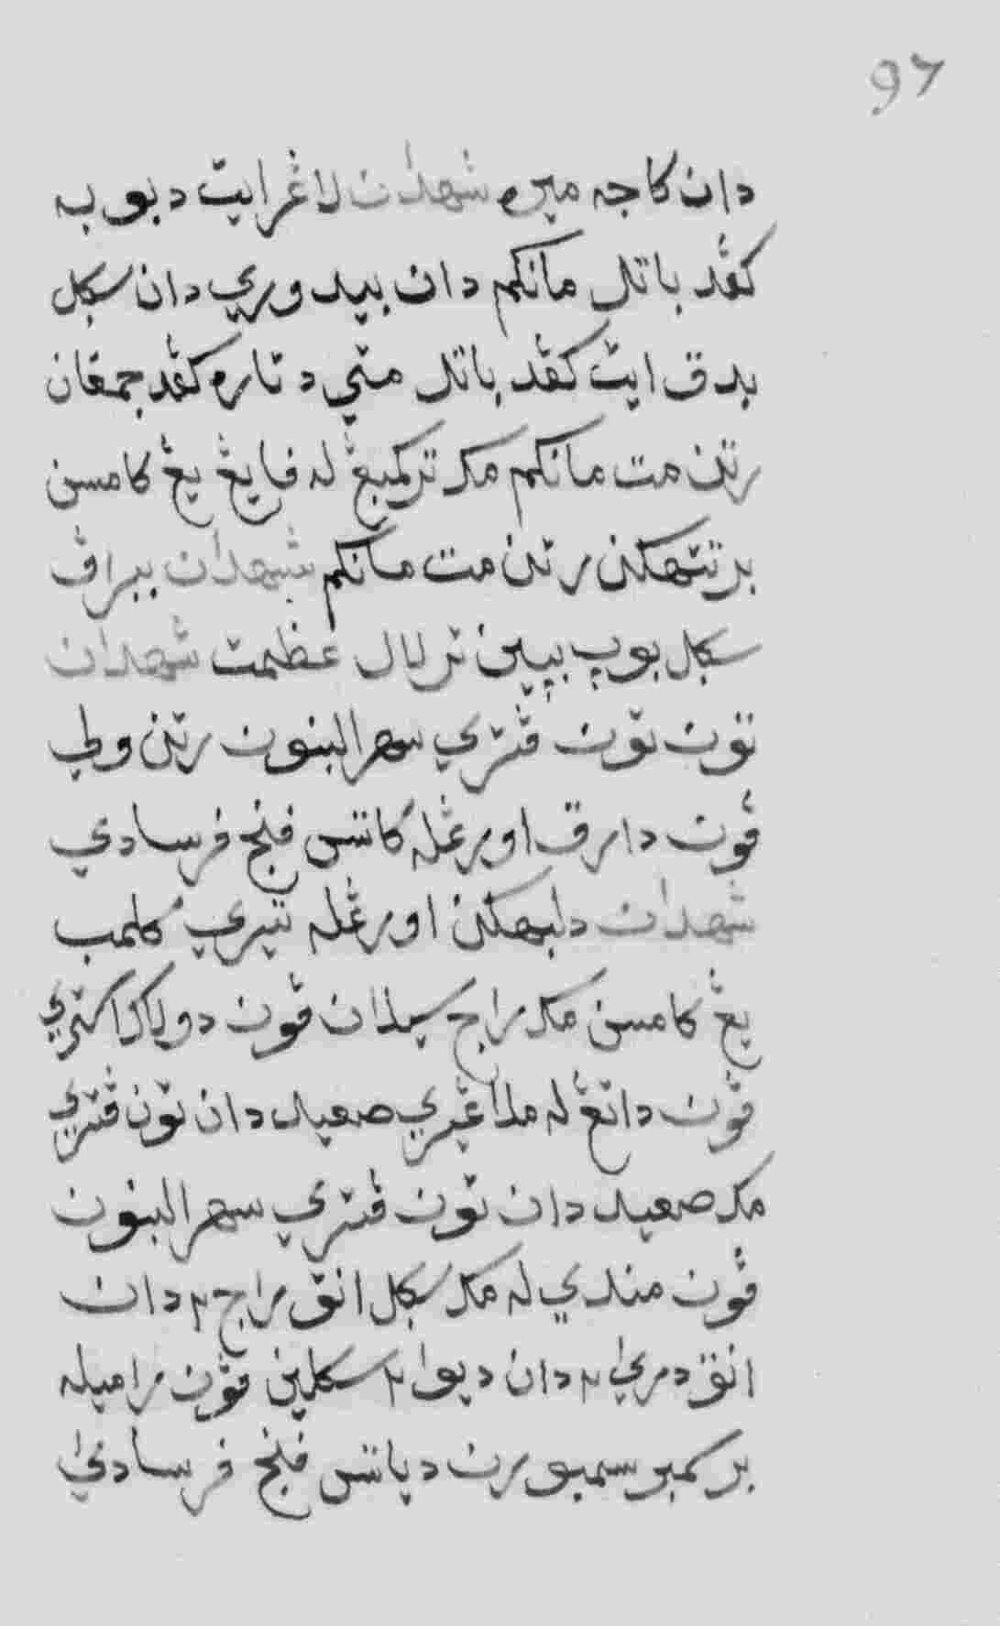 97
دان كاجه ميره شهدان لاڠرايت دبوبه
كڤد باتل مانكم دان بيدوري دان سكل
بدق ايت كڤد باتل متي دتاره كڤد جمڤان
رتن مت مانكم مك تركمبڠ له ڤايڠ يڠ كامسن
برتتهكن رتن مت مانكم شهدان ببراڤ
سكل بوڽ بيين ترلال عظمت شهدان
تون تون ڤتري سهرالبنون رتن ولي
ڤون دارق اورڠله كاتس ڤنج ڤرسادي
شهدان دلبهكن اورڠله تيري كلمب
يڠ كامسن مك راج سيلان ڤون دودكدكتري
ڤون داتڠ له مڠاڠيري صعيد دان تون ڤتري
مك صعيد دان تون ڤتري سهرالبنون
ڤون مندي له مك سكل انق راج٢ دان
انق دري٢ دان ديوا٢ سكلين ڤون راميله
بركمبر سمبورن دياتس ڤنج ڤرسادي